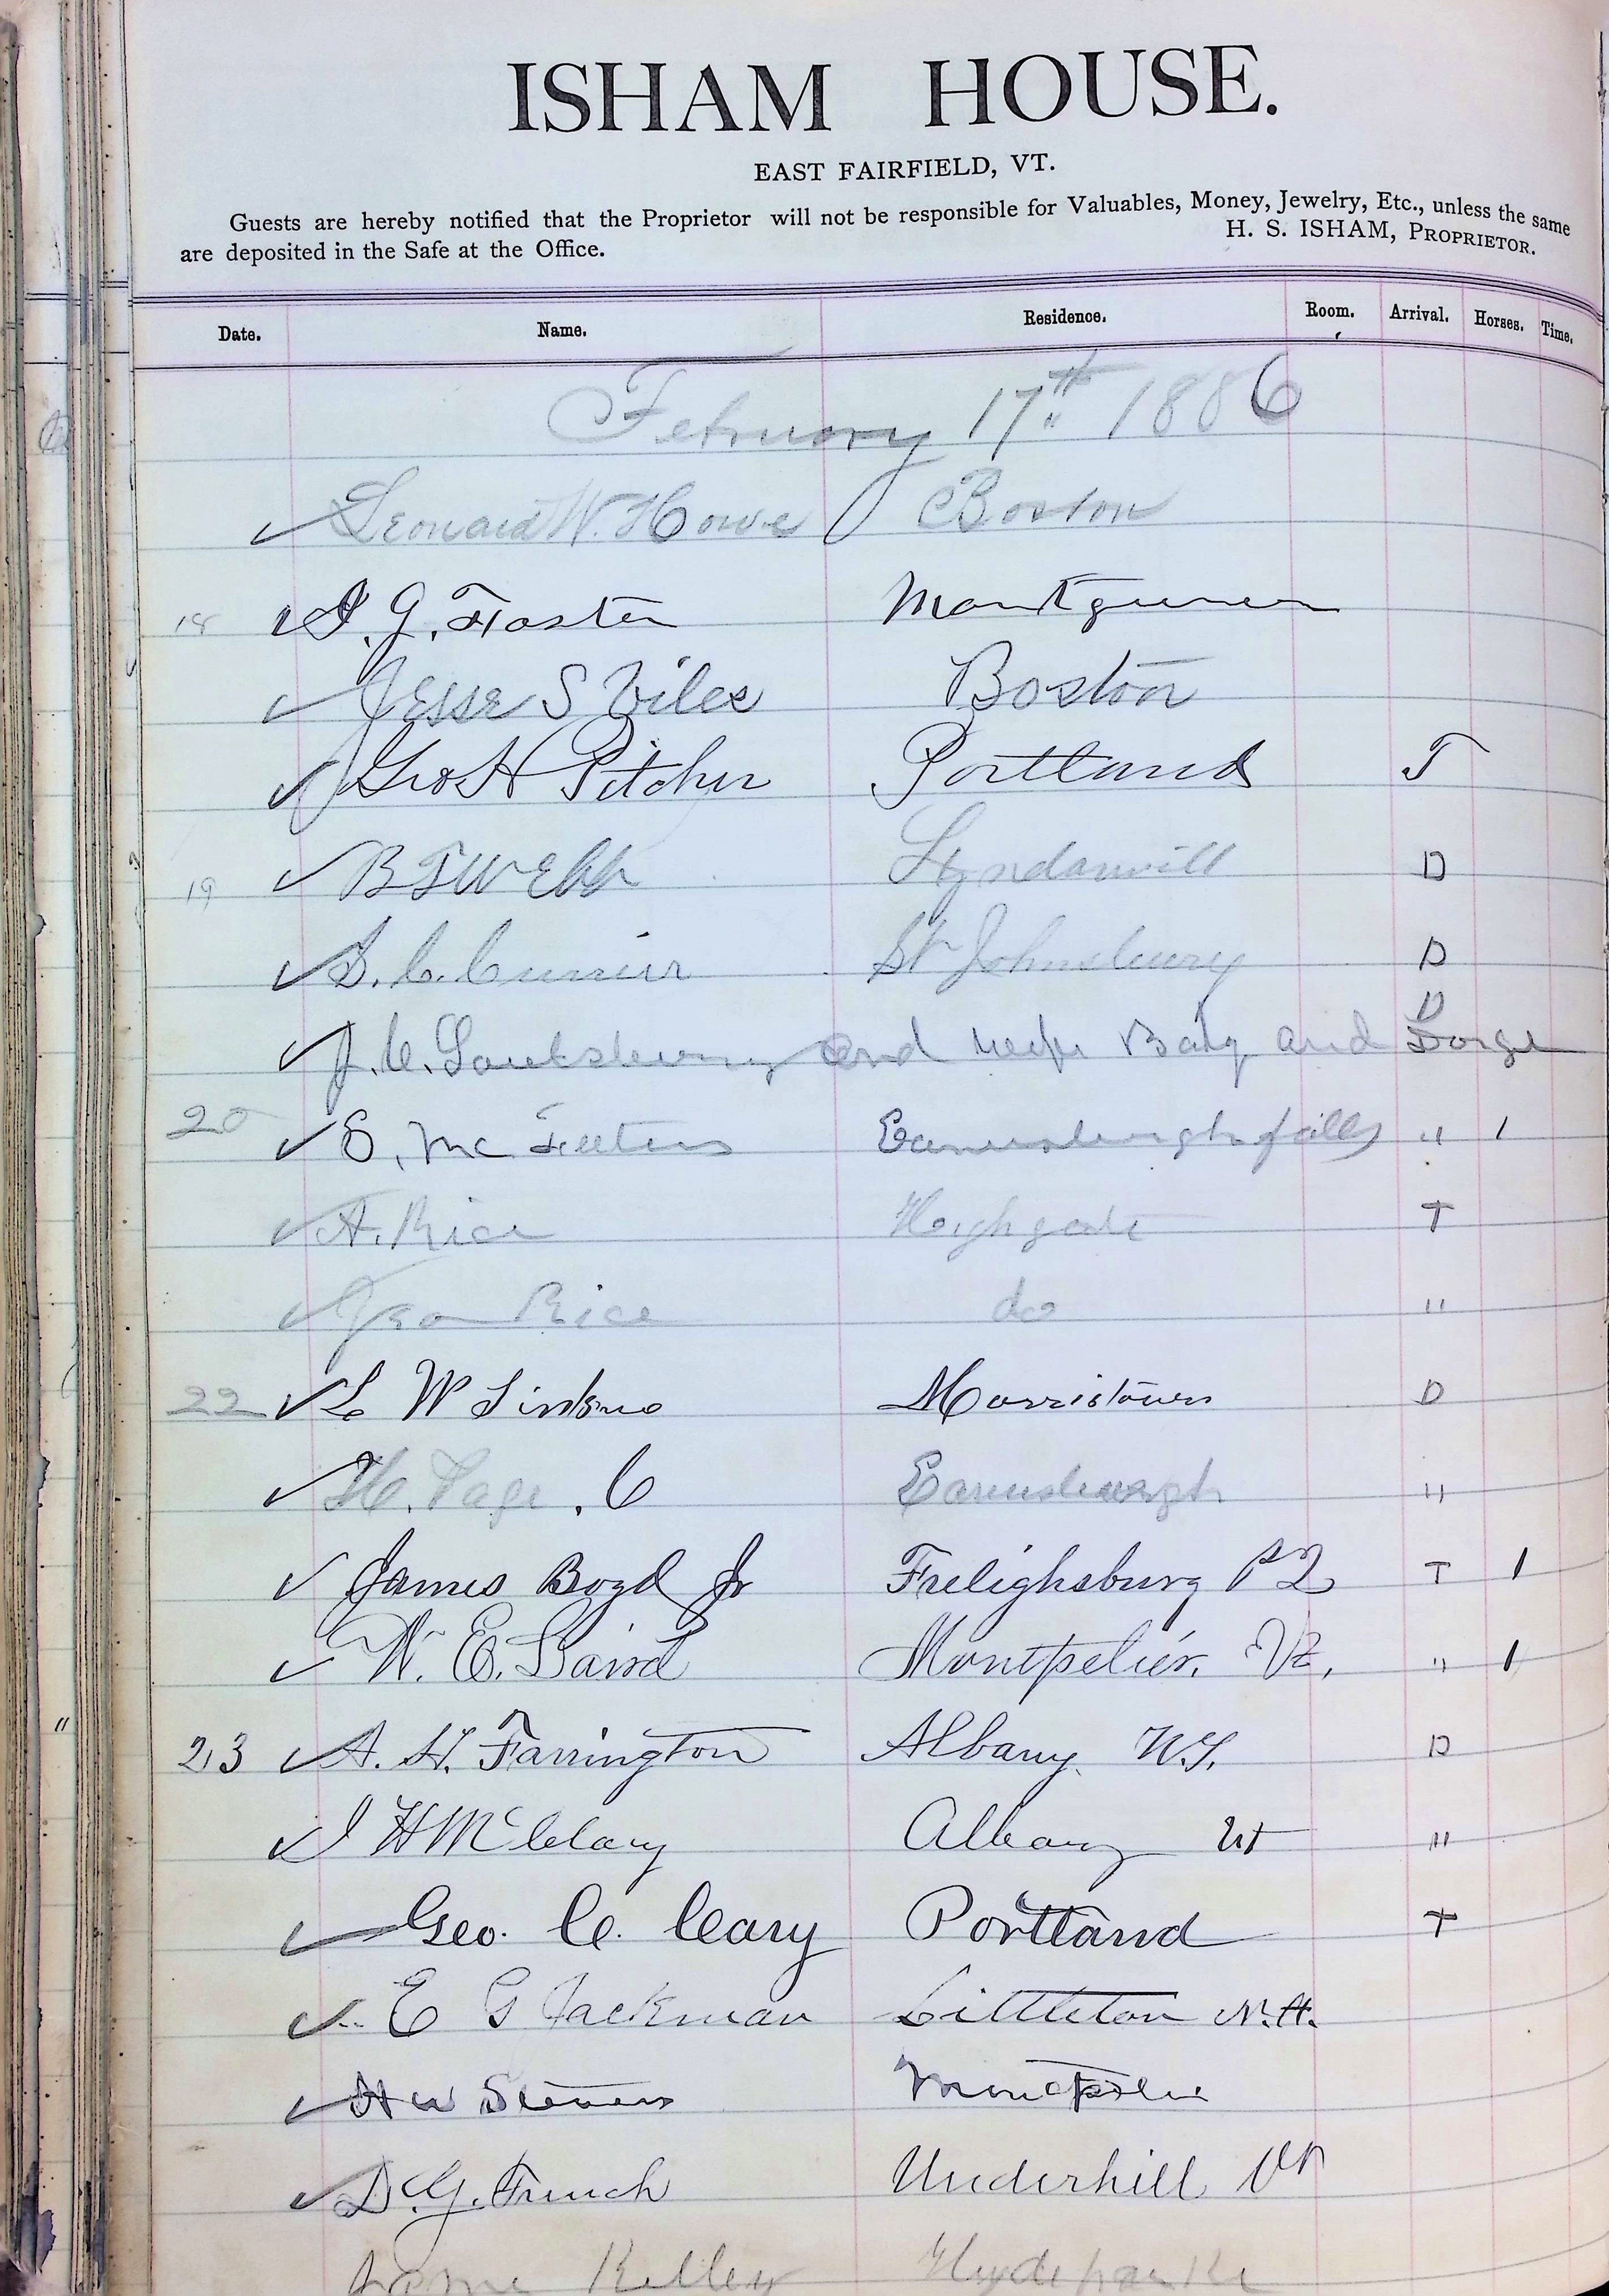 ISHAM HOUSE.
EAST FAIRFIELD, VT.
Guests are hereby notified that the Proprietor will not be responsible for Valuables, Money, Jewelry, Etc., unless the same
are deposited in the Safe at the Office.
H. S. ISHAM, PROPRIETOR.
Date. Name. Residence. Room. Arrival. Horses. Time.
February 17th 1886
Leonard W. Howe Boston
18 J. G. Foster
Jesse S Viles Boston
Geo H Pitcher Portland T
19 Webb Lyndanvill D
S. C. Currier St Johnsbury D
D
J. C. and Baby and
20 E. Mc Feeters falls " 1
A. Rice Highgate T
Rice do "
22 L W Morristown D
H. Page. C "
James Boyd Jr Frelighsburg P2 T 1
W. E. Baird Montpelier. Vt. " 1
23 A. H. Farrington Albany N.Y. D
J H McClary Albany Vt "
Geo. C. Cary Portland T
E G Jackman Littleton N.H.
H W Stevens Montpelier
D. G. French Underhill Vt
Keller Hydepark